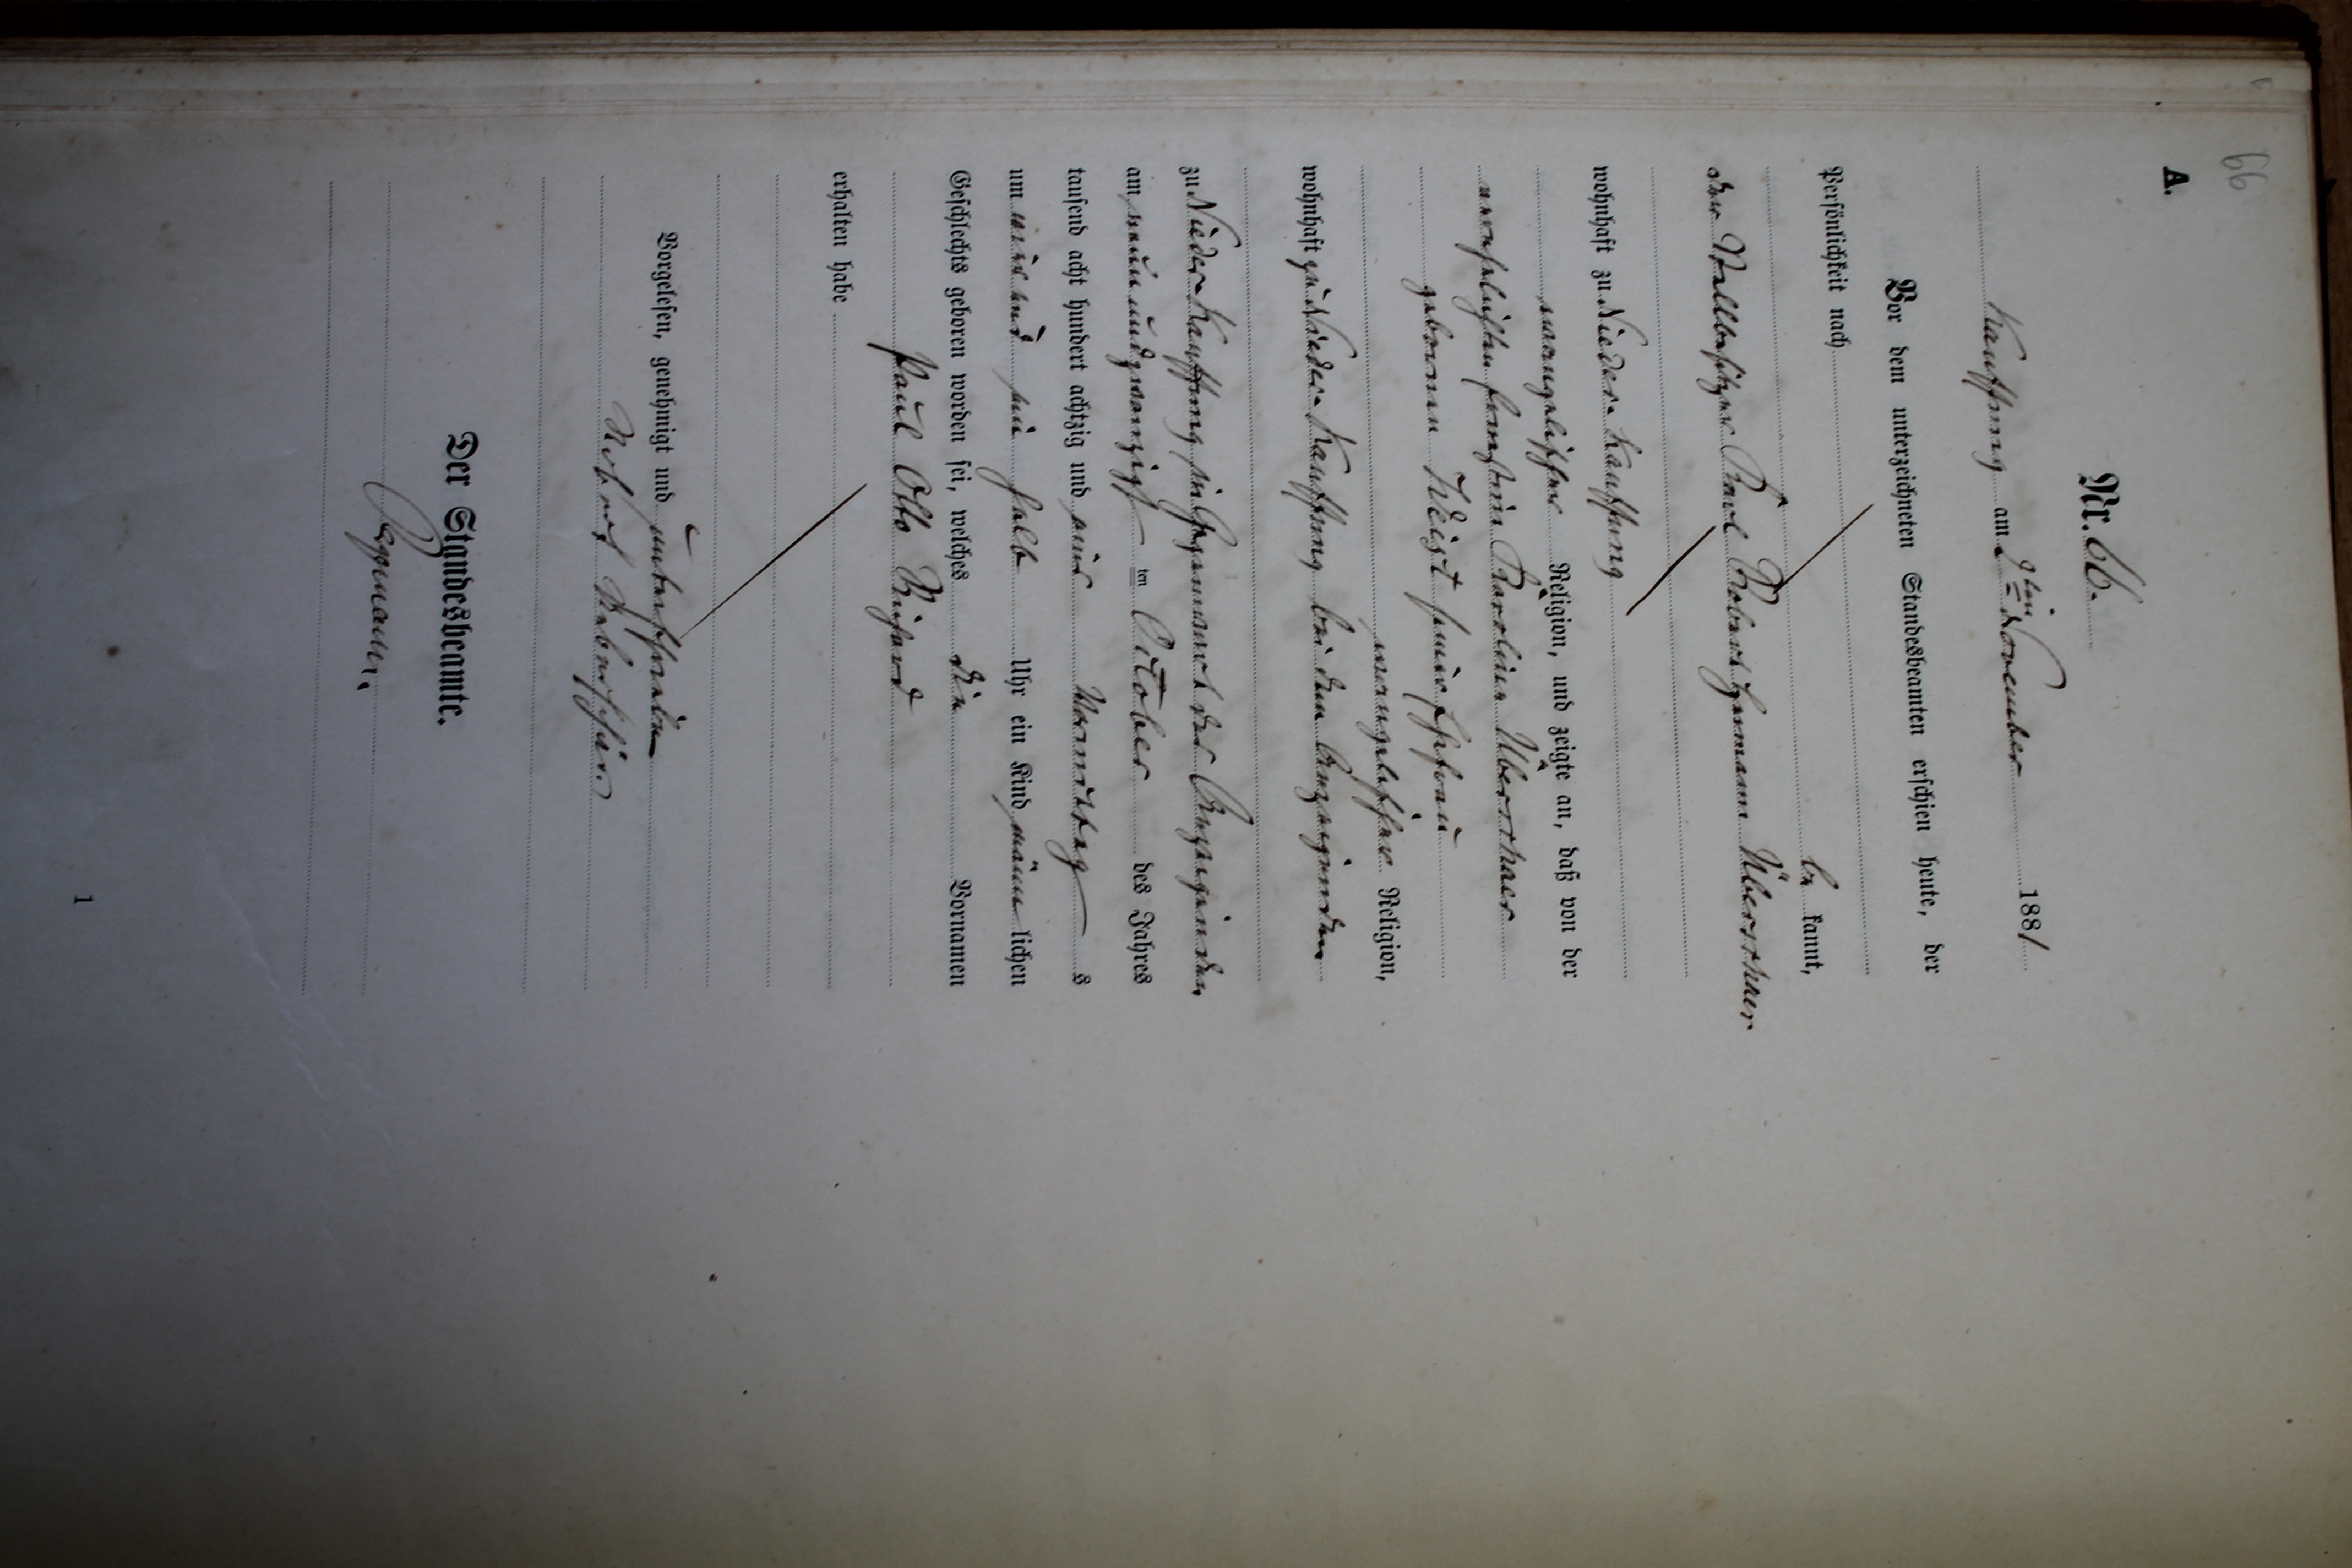 66
A.
Nr. 66.
Kauffung am 2ten November 1881
Vor dem unterzeichneten Standesbeamten erschien heute, der
Persönlichkeit nach
be kannt,
der Stellbesitzer Karl Robert Hermann Überschaer
wohnhaft zu Nieder-Kauffung
evangelischer Religion, und zeigte an, daß von der
verehelichten Ernestine Karoline Überschaer
geborenen Weist seiner Ehefrau
evangelischer Religion,
wohnhaft zu Nieder-Kauffung bei dem Anzeigenden
zu Nieder-Kauffung in Gegenwart des Anzeigenden
am neunundzwanzigsten October des Jahres
tausend acht hundert achtzig und eins Vormittag s
um und ein halb Uhr ein Kind männ lichen
Geschlechts geboren worden sei, welches die Vornamen
Paul Otto Richard
erhalten habe
Vorgelesen, genehmigt und unterschrieben
Robert Ueberschär
Der Standesbeamte.
1